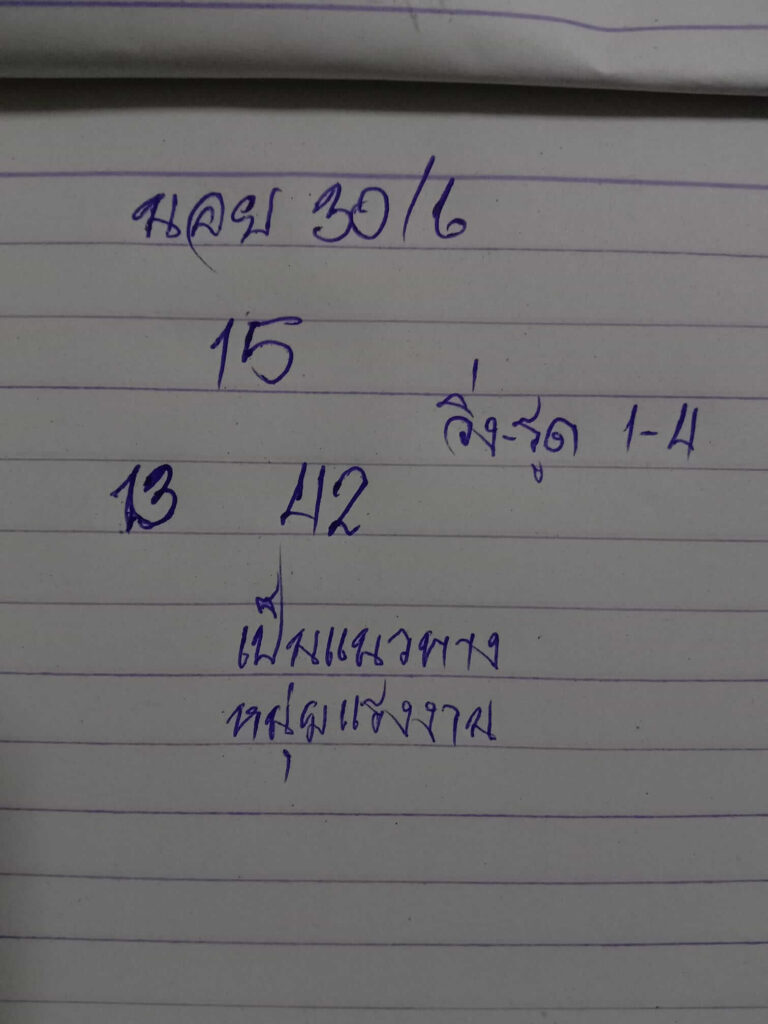 นอย 30/6
15
วิ่ง-รูด 1-4
13 42
เป็นแนวทาง
หนุ่มแรงงาน